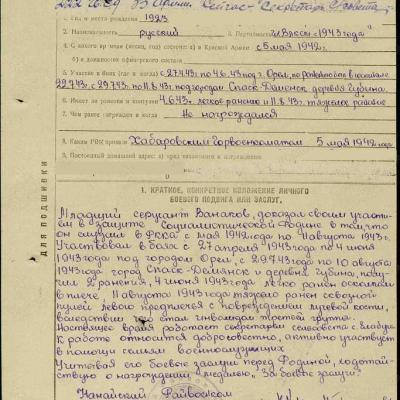 1. Год и место рождения 1923
2. Национальность русский
4. С какого вре мени (месяц, год) состоит в Красной Армии с 5 мая 1942 г.
б) в должности офицерского состава
5. Участие в боях (где и когда) с 27.4.43г по 4.6.43 под г. Орел,
22.7.43г. с 29.7.43г по 11.8.43г. под городом Спасск-Деменск деревня Губина
6. Имеет ли ранения и контузии 4.6.43 легкое ранение и 11.8.43г. тяжелое ранение
7. Чем ранее награжден и когда Не награждался
8. Каким РВК призван Хабаровским горвоенкоматом 5 мая 1942 года
9. Постоянный домашний адрес
ДЛЯ ПОДШИВКИ
1. КРАТКОЕ, КОНКРЕТНОЕ ИЗЛОЖЕНИЕ ЛИЧНОГО
БОЕВОГО ПОДВИГА ИЛИ ЗАСЛУГ.
Младший сержант Ванаков, доказал своим участи-
ем в защите Социалистической Родине в том, что
он служил в РККА с мая 1942 года по 11 августа 1943г.
Участвовал в боях с 27 апреля 1943 года по 4 июня
1943 года под городом Орел, с 29.7.43 года по 10 августа
1943 года город Спасск-Демянск и деревня Губина, полу-
чил 2 ранения, 4 июня 1943 года легко ранен осколком
в плечо, 11 августа 1943 года тяжело ранен сквозной
пулей левого предплечья с повреждением лучевой кости,
вследствии чего стал инвалидом третьей группы.
Настоящее время работает секретарем сельсовета с. Найхин
к работе относится добросовестно, активно участвует
в помощи семьям военнослужащих
Учитывая его боевые заслуги перед Родиной, ходатай-
ствую о награждении медалью "За боевые заслуги"
Нанайский Райвоенком